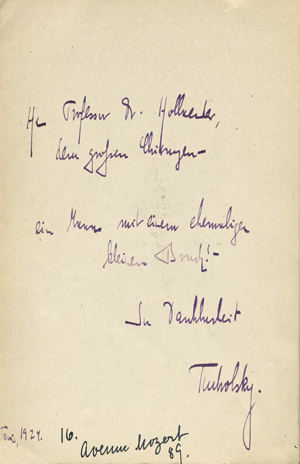 Hr Professor Dr. Hollaender,
dem grossen Chirurgen –
ein Mann mit einem ehemaligen
kleinen Bruch! –
In Dankbarkeit
Tucholsky.
1924.
16. Avenue Mozart
89.